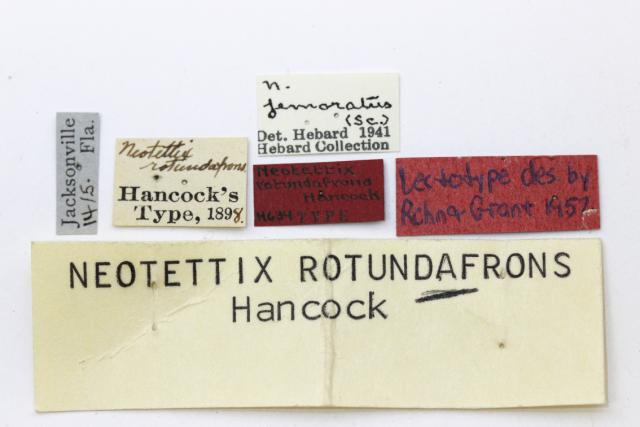 Jacksonville
14/5. Fla.
Neotettix
rotundafrons
Hancock's
Type, 1898.
n.
femoratus
(Sc.)
Det. Hebard 1941
Hebard Collection
Neotettix
rotundafrons
Hancock
H634 TYPE
Lectotype des by
Rehn & Grant 1957
NEOTETTIX ROTUNDAFRONS
Hancock